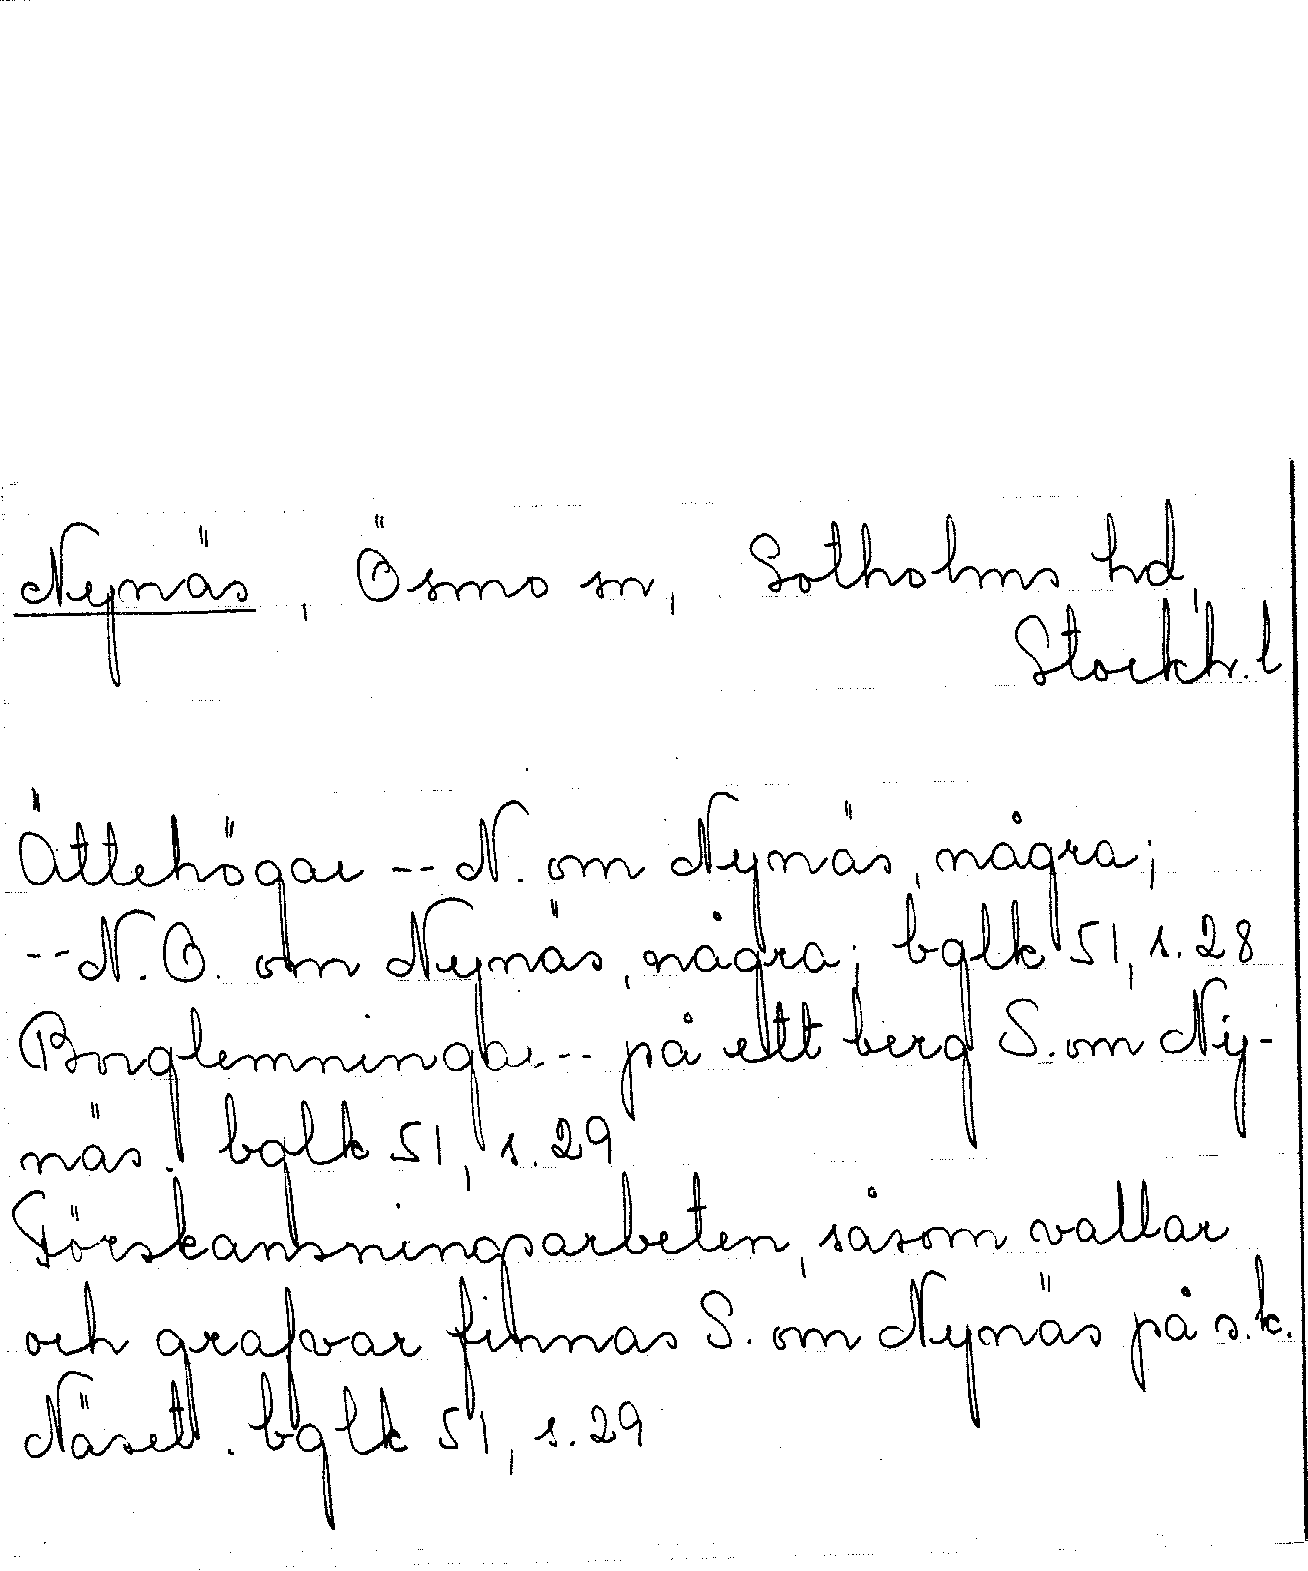 Nynäs, Ösmo sn, Sotholms hd,
Stockh. l
Ättehögar -- N. om Nynäs, några;
-- N.O. om Nynäs, några; bglk 51, s. 28
Borglemningar -- på ett berg S. om Ny-
näs. bglk 51, s. 29
Förskansningsarbeten, såsom vallar
och grafvar finnas S. om Nynäs på s.k.
Näset. bglk 51, s. 29